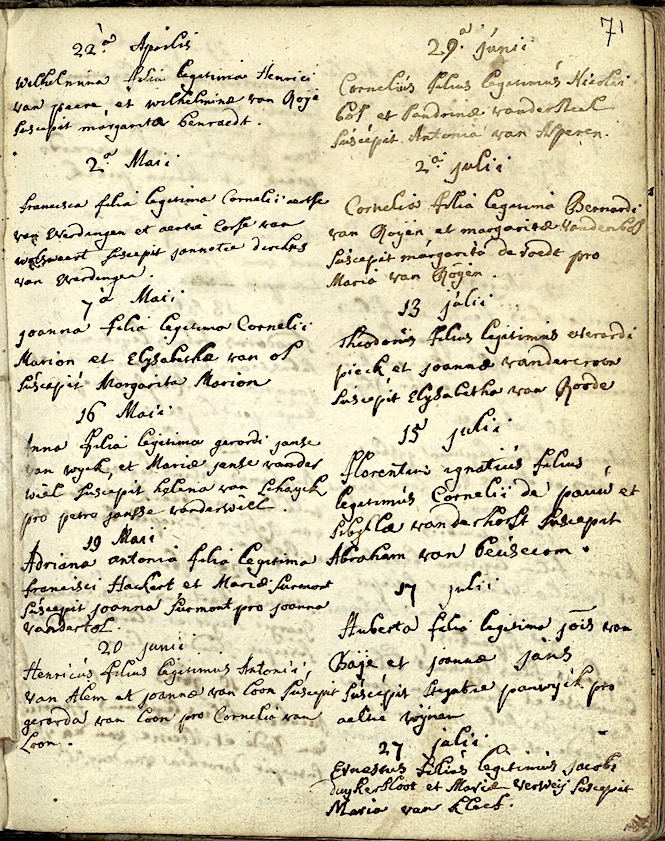 22ª Aprilis
Wilhelmina filia legitima Henrici
van peere, et wilhelminæ van Roye
suscepit margarita benraedt.
2ª Maii
francisca filia legitima Cornelii aertse
van Werdingen et aertie Corse van
suscepit jannetie dirckxs
van Werdingen.
7ª Maii
joanna filia legitima Cornelii
Marion et Elysabethæ van ol
suscepit Margarita Marion
16 Maii
Anna filia legitima gerardi janse
van wyck, et Mariæ janse vander
wiel suscepit helena van Schayck
pro petro jansse vanderwiel.
19 Maii
Adriana antonia filia legitima
francisci Hackert et Mariæ surmont
suscepit joanna surmont pro joanna
vandertol.
20 junii
Henricus filius legitimus Antonii,
van Alem et joannæ van loon suscepit
gerarda van loon pro Cornelia van
Loon.
71
29ª junii
Cornelius filius legitimus Nicolai
bol et sandrinæ vandersteel
suscepit Antonia van Asperen.
2ª julii
Cornelia filia legitima Bernardi
van Royen et margaritæ vandenbos
suscepit margarita de voedt pro
Maria van Royen.
13 julii
Theodorus filius legitimus everardi
pieck et joannæ vandercroon
suscepit Elysabetha van Roode
15 julii
Florentius ignatius filius
legitimus Cornelii de pauw et
sibyllæ vanderhorst suscepit
Abraham van beusecom.
17 julii
Huberta filia legitima jois van
et joannæ jans
suscepit pauwyck pro
aeltie wynen
27 julii
Ernestus filius legitimus jacobi
duyckersloot et Mariæ verweij suscepit
Maria van Kleef.